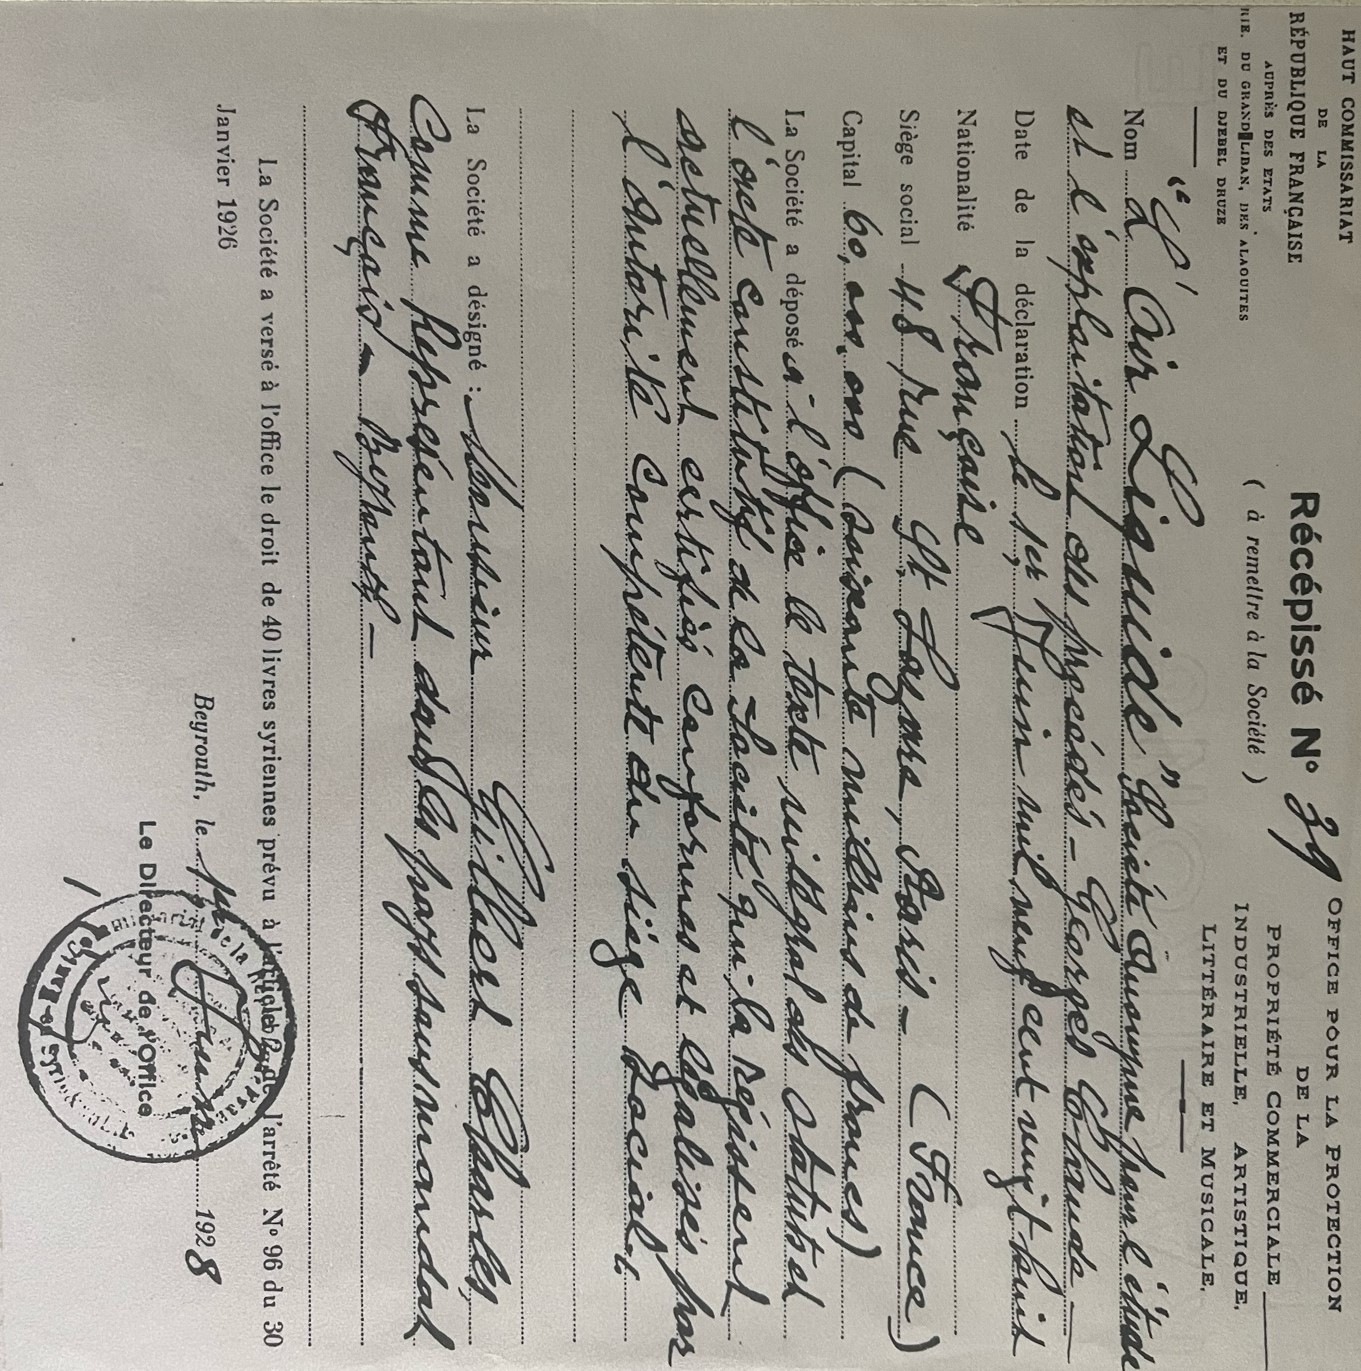 HAUT COMMISSARIAT
DE LA
RÉPUBLIQUE FRANÇAISE
AUPRÈS DES ETATS
RIE. DU GRAND LIBAN, DES ALAOUITES
ET DU DJEBEL DRUZE
Récépissé N° 39
( à remettre à la Société )
OFFICE POUR LA PROTECTION
DE LA
PROPRIÉTÉ COMMERCIALE
INDUSTRIELLE, ARTISTIQUE,
LITTÉRAIRE ET MUSICALE.
Nom "L'Air Liquide" Société Anonyme pour l'étude
et l'exploitation des procédés - Georges Claude -
Date de la déclaration le 1er Juin mil neuf cent vingt huit
Nationalité Française
Siège social 48 rue St Lazare, Paris - (France)
Capital 60,000,000 (soixante millions de francs)
La Société a déposé à l'office le texte intégral des statuts et
l'acte constitutif de la Société qui la régissent
actuellement certifiés conformes et légalisés par
l'autorité compétente du siège social
La Société a désigné : Monsieur Gilbert Charles,
comme Représentant dans les pays sous mandat
Français - Beyrouth -
La Société a versé à l'office le droit de 40 livres syriennes prévu à l'article de l'arrêté N° 96 du 30
Janvier 1926
Beyrouth, le 1er Juin 1928
Le Directeur de l'Office